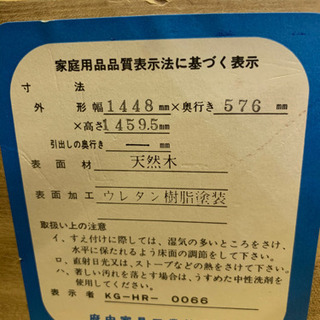 家庭用品品質表示法に基づく表示
寸法
外形 幅1448mm×奥行き576mm
×高さ1459.5mm
引出しの奥行き ― mm
表面材 天然木
表面加工 ウレタン樹脂塗装
取扱い上の注意
イ、すえ付けに際しては、湿気の多いところをさけ、
水平に保たれるよう床面の調節をして下さい。
ロ、直射日光又は、ストーブなどの熱をさけて下さい。
ハ、著しい汚れを落とす場合は、うすめた中性洗剤を
使用してください。
表示者 KG-HR-0066